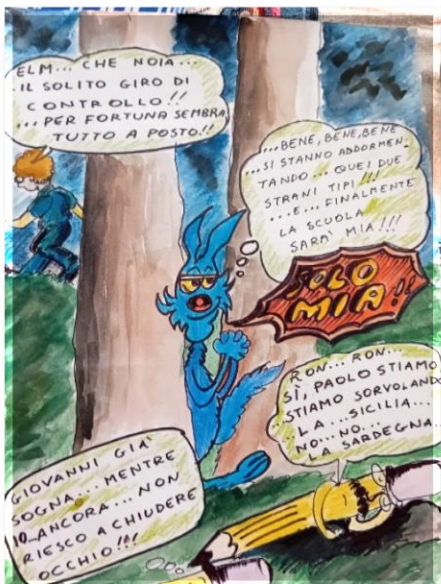 ELM... CHE NOIA...
IL SOLITO GIRO DI
CONTROLLO!!
...PER FORTUNA SEMBRA
TUTTO A POSTO!!
...BENE, BENE, BENE
...SI STANNO ADDORMEN_
TANDO... QUEI DUE
STRANI TIPI!!!
...E... FINALMENTE
LA SCUOLA
SARA' MIA!!!
SOLO
MIA!!
RON... RON...
SÌ, PAOLO STIAMO
STIAMO SORVOLAND
LA... SICILIA...
NO... NO...
LA SARDEGNA...
GIOVANNI GIA'
SOGNA... MENTRE
IO... ANCORA... NON
RIESCO A CHIUDERE
OCCHIO!!!